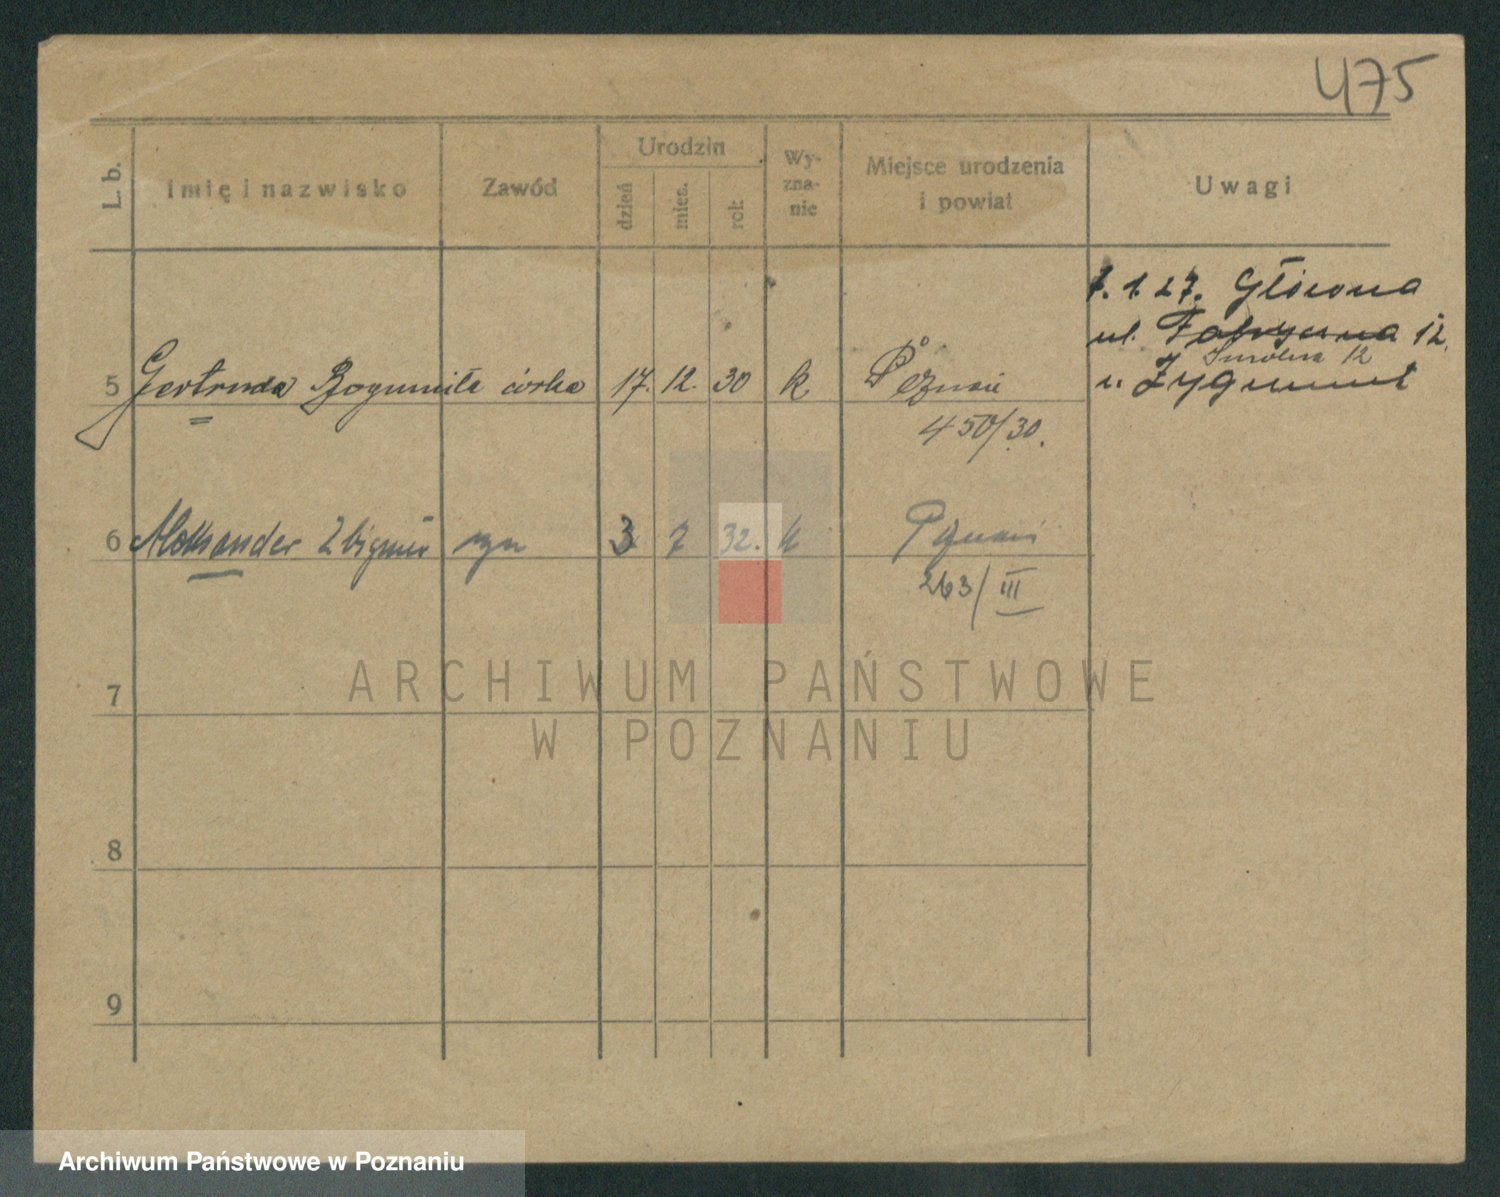 475
L. b.
Imię i nazwisko
Zawód
Urodzin
dzień
mies.
rok
Wy-
zna-
nie
Miejsce urodzenia
i powiat
Uwagi
7. 1. 27. Główna
ul. Fabryczna 12.
Smolna 12
u. Zygmunt
5 Gertruda Bogumiła córka 17. 12. 30 k. Poznań
450/30.
6 Aleksander Zbigniew syn 3 7 32. k Poznań
263/III
7
8
9
ARCHIWUM PAŃSTWOWE
W POZNANIU
Archiwum Państwowe w Poznaniu